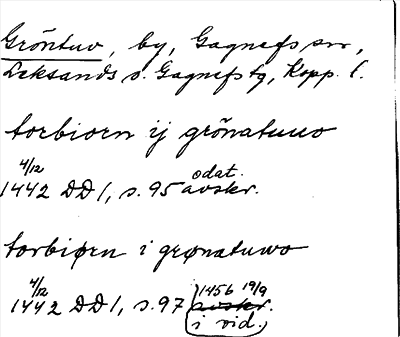 Gröntuv, by, Gagnefs sn,
Leksands o. Gagnefs tg, Kopp. l.
torbiorn ij grönatuuo
4/12 odat.
1442 DD 1, s. 95 avskr.
torbiørn i grønatuwo
4/12 1456 19/9
1442 DD 1, s. 97 avskr.
i vid.